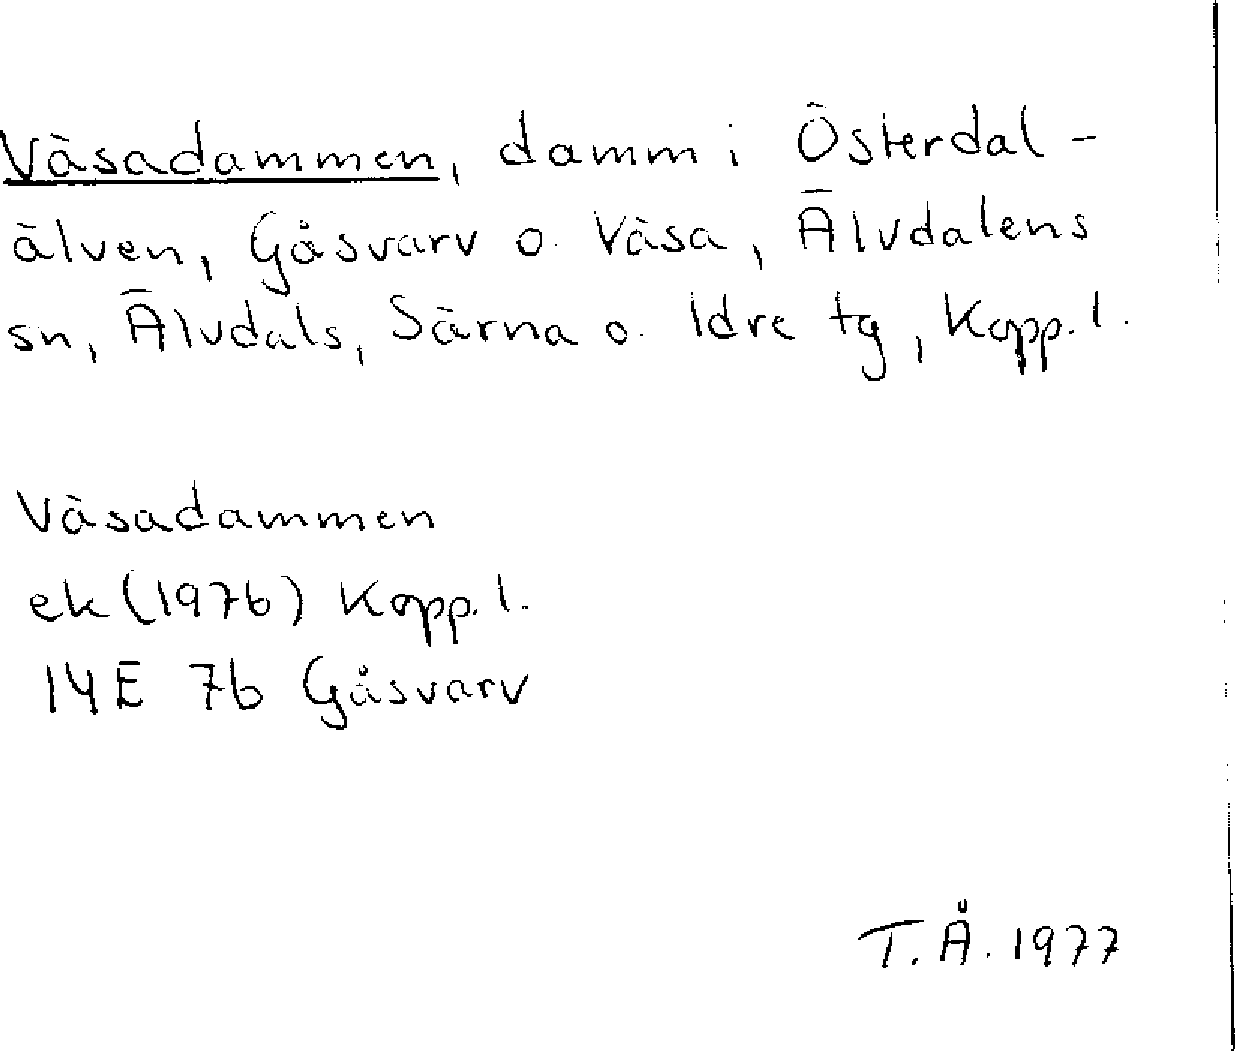 Väsadammen, damm i Österdal-
älven, Gåsvarv o. Väsa, Älvdalens
sn, Älvdals, Särna o. Idre tg, Kopp. l.
Väsadammen
ek (1976) Kopp. l.
14E 7b Gåsvarv
T. Å. 1977